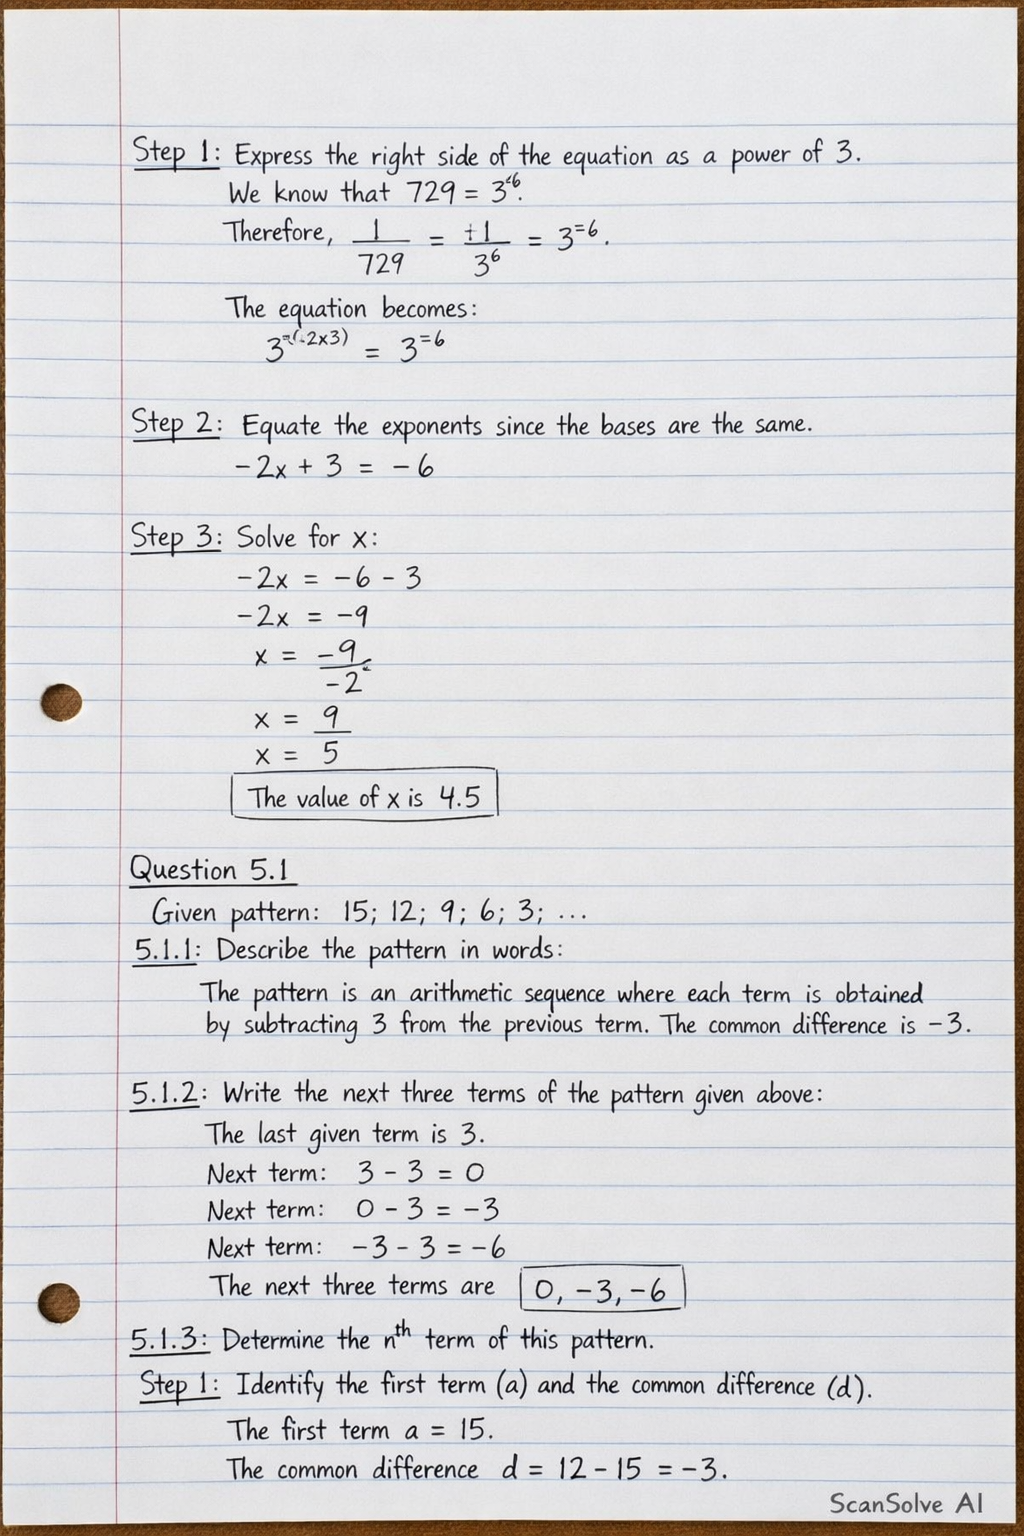 Step 1: Express the right side of the equation as a power of 3.
We know that 729 = 3^6.
Therefore, 1/729 = +1/3^6 = 3^=6.
The equation becomes:
3^=(-2x3) = 3^=6
Step 2: Equate the exponents since the bases are the same.
-2x + 3 = -6
Step 3: Solve for x:
-2x = -6 - 3
-2x = -9
x = -9/-2
x = 9
x = 5
The value of x is 4.5
Question 5.1
Given pattern: 15; 12; 9; 6; 3; ...
5.1.1: Describe the pattern in words:
The pattern is an arithmetic sequence where each term is obtained
by subtracting 3 from the previous term. The common difference is -3.
5.1.2: Write the next three terms of the pattern given above:
The last given term is 3.
Next term: 3 - 3 = 0
Next term: 0 - 3 = -3
Next term: -3 - 3 = -6
The next three terms are 0, -3, -6
5.1.3: Determine the n^th term of this pattern.
Step 1: Identify the first term (a) and the common difference (d).
The first term a = 15.
The common difference d = 12 - 15 = -3.
ScanSolve AI